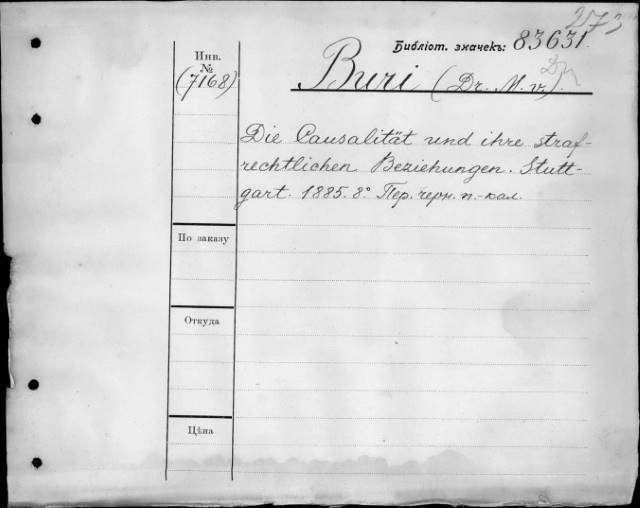 273
Библіот. значекъ: 83631.
Инв.
№
(7168)
Buri (Dr. M. v.).
Die Causalität und ihre straf-
rechtlichen Beziehungen. Stutt-
gart. 1885. 8° Пер. черн. п.-кал.
По заказу
Откуда
Цѣна